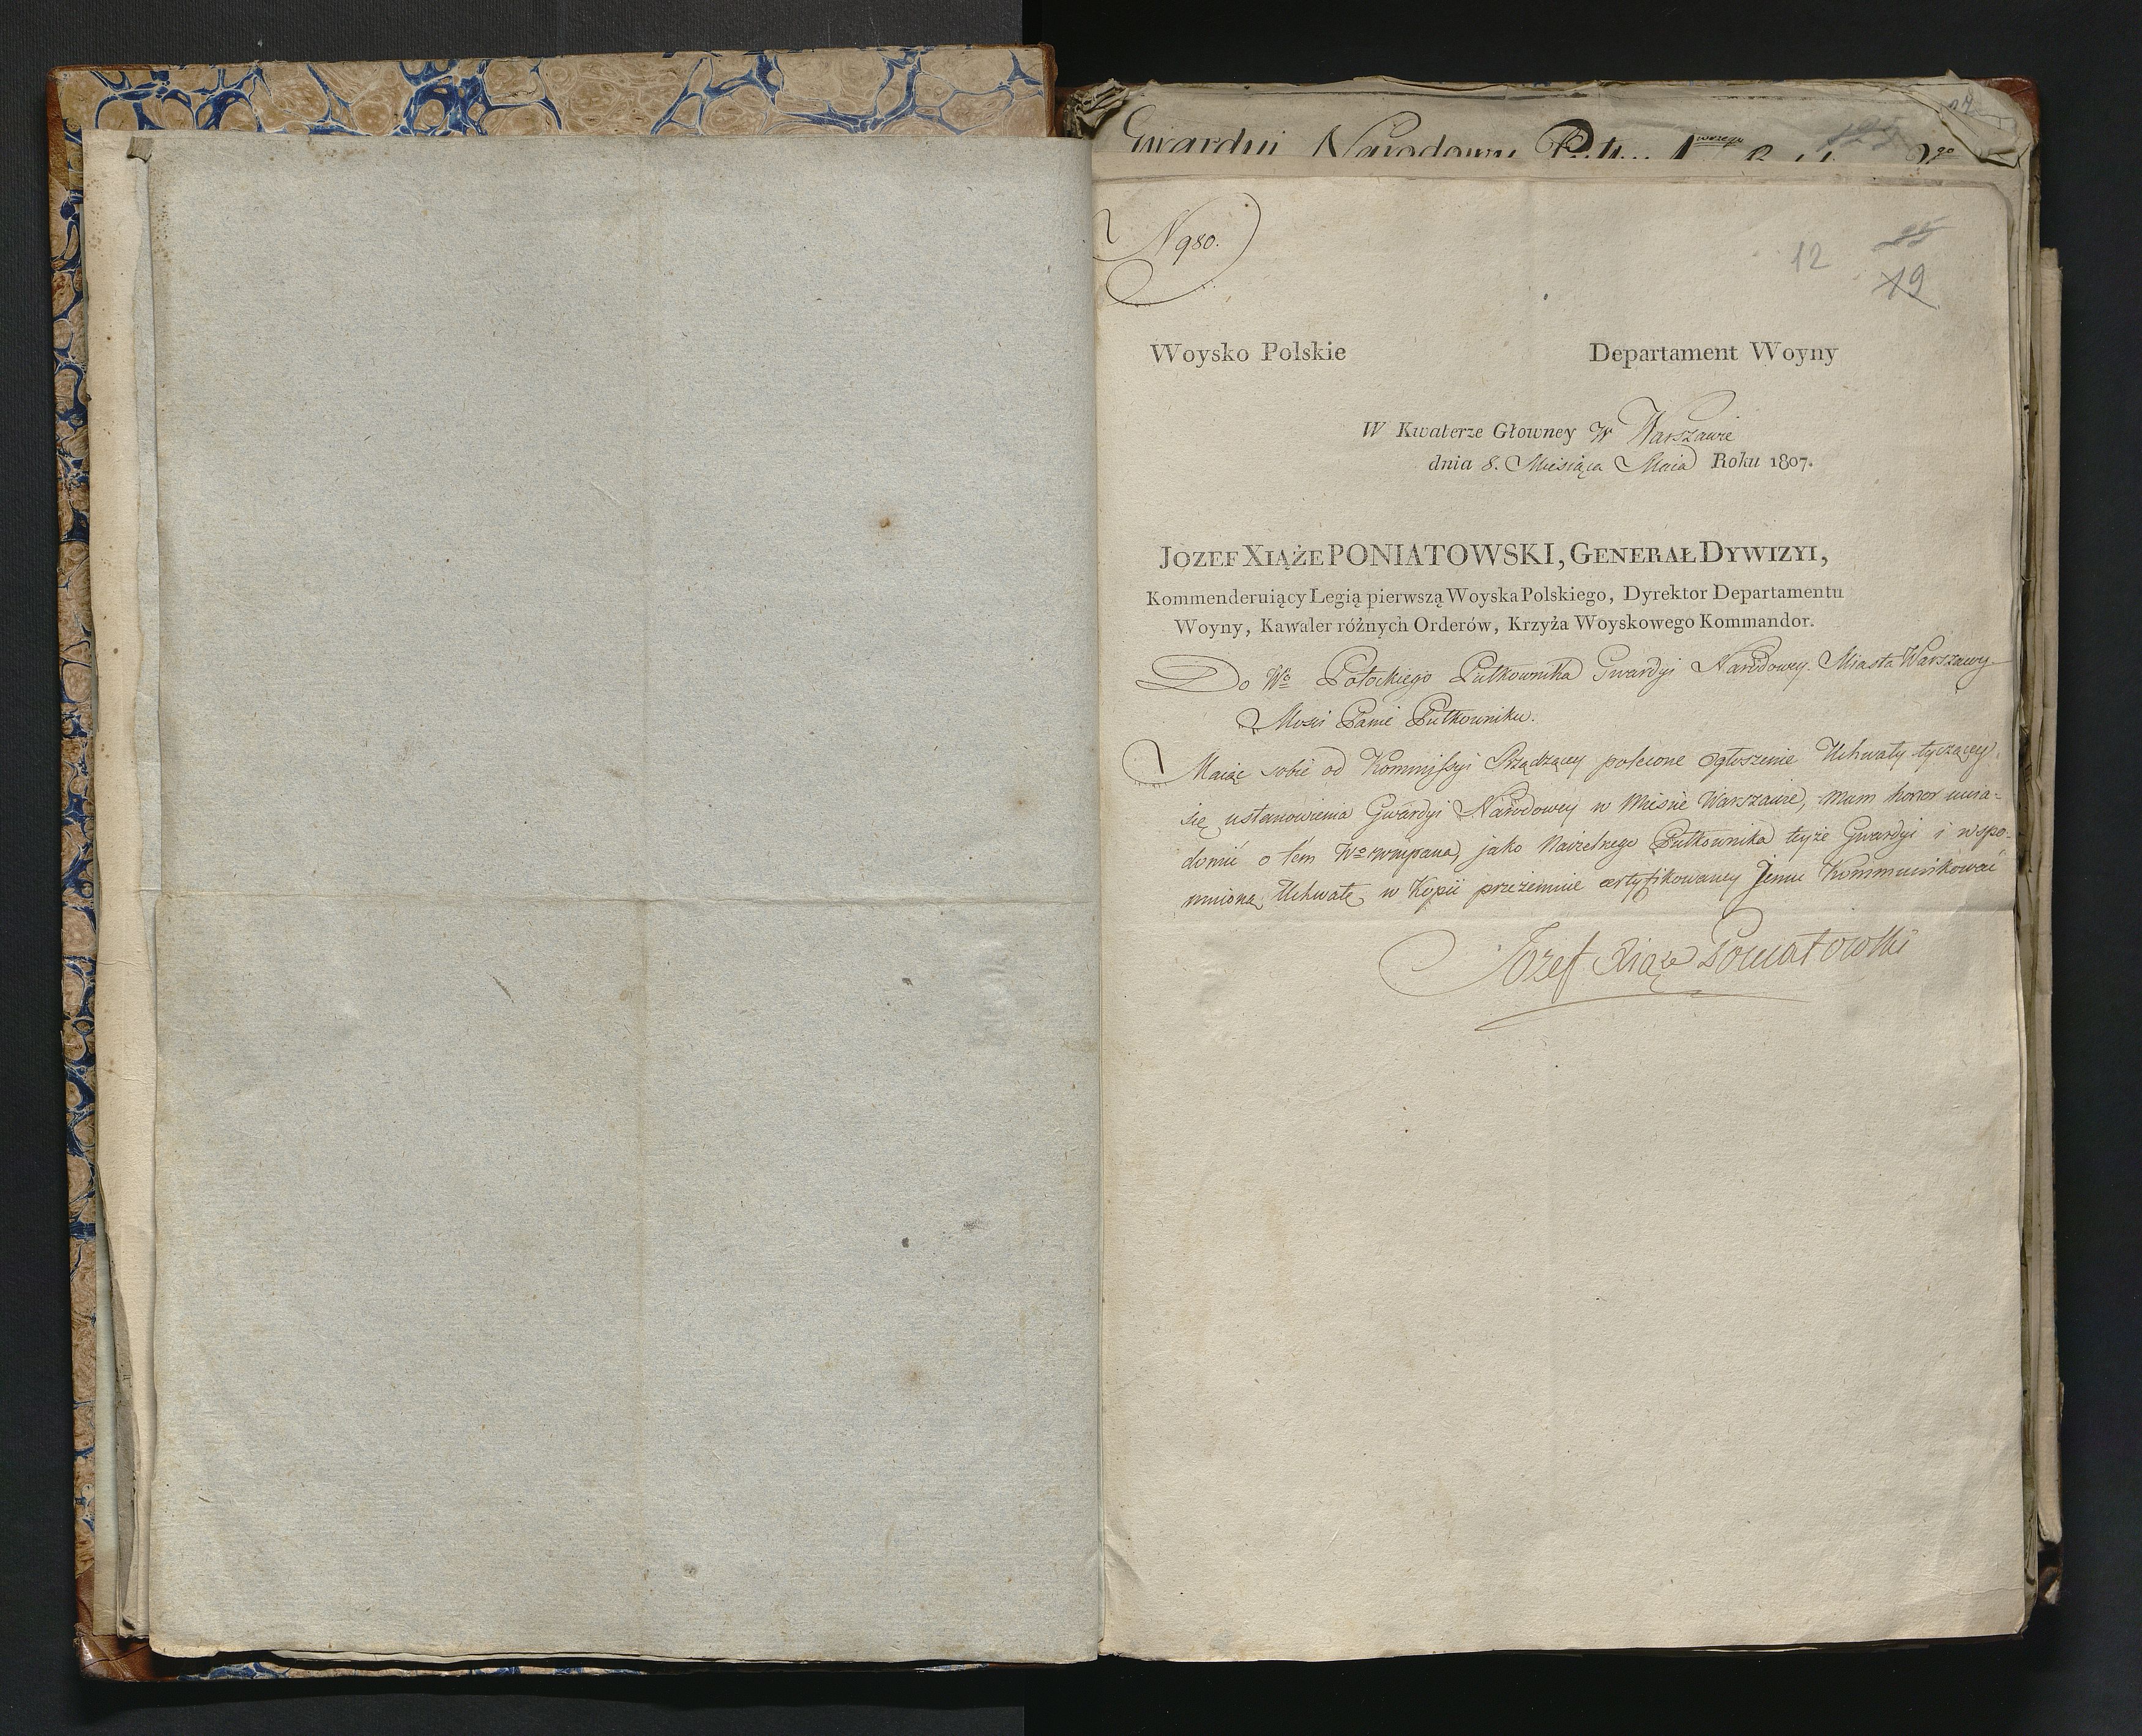 Gwardyi Narodowey
N 980.
12
19
Woysko Polskie Departament Woyny
W Kwaterze Głowney W Warszawie
dnia 8. Miesiąca Maia Roku 1807.
JOZEF XIĄŻE PONIATOWSKI, GENERAŁ DYWIZYI,
Kommenderuiący Legią pierwszą Woyska Polskiego, Dyrektor Departamentu
Woyny, Kawaler różnych Orderów, Krzyża Woyskowego Kommandor.
Do Wo Potockiego Pułkownika Gwardyi Narodowey Miasta Warszawy.
Mości Panie Pułkowniku.
Maiąc sobie od Kommissyi Rządzącey polecone ogłoszenie Uchwały tyczącey
się ustanowienia Gwardyi Narodowey w Mieście Warszawie, mam honor uwia-
domić o tem Wo wmpana, jako Naczelnego Pułkownika teyże Gwardyi i wspo-
mnioną Uchwałę w Kopii przezemnie certyfikowaney Jemu Kommunikować
Jozef Xiąże Poniatowski